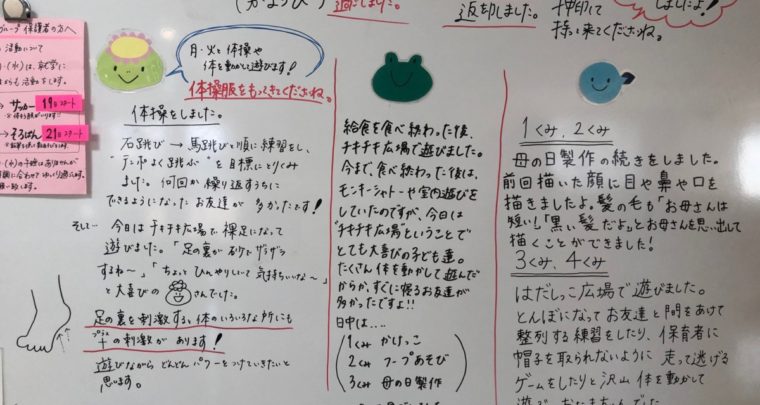 過ごしました。
返却しました。
押印して
持って来てくださいね。
しましたよ!
グループ 保護者の方へ
活動について
サッカー 19日スタート
そろばん 21日スタート
月・火と体操や
体を動かして遊びます!
体操服をもってきてくださいね。
体操をしました。
石跳び → 馬跳びと順に練習をし、
"テンポよく跳ぶ"を目標にとりくみ
ました。何回か繰り返すうちに
できるようになったお友達が多かったです!
そして… 今日はチキチキ広場で裸足になって
遊びました。「足の裏が砂でザラザラ
すね〜」「ちょっとひんやりしていて気持ちいいな〜」
と大喜びの さんでした。
足の裏を刺激する、体のいろいろな所にも
プラス
+の刺激があります!
遊びながらどんどんパワーをつけていきたいと
思います。
給食を食べ終わった後、
チキチキ広場で遊びました。
今まで、食べ終わった後は、
モンキーシャトーや室内遊びを
していたのですが、今日は
"チキチキ広場"ということで
とても大喜びの子ども達。
たくさん体を動かして遊んだ
からか、すぐに寝るお友達が
多かったですよ!!
日中は....
1くみ かけっこ
2くみ フープあそび
3くみ 母の日製作
1くみ、2くみ
母の日製作の続きをしました。
前回描いた顔に目や鼻や口を
描きましたよ。髪の毛も「お母さんは
短い!」「黒い髪だよ」とお母さんを思い出して
描くことができました!
3くみ、4くみ
はだしっこ広場で遊びました。
とんぼになってお友達と間をあけて
整列する練習をしたり、保育者に
帽子を取られないように走って逃げる
ゲームをしたりと沢山体を動かして